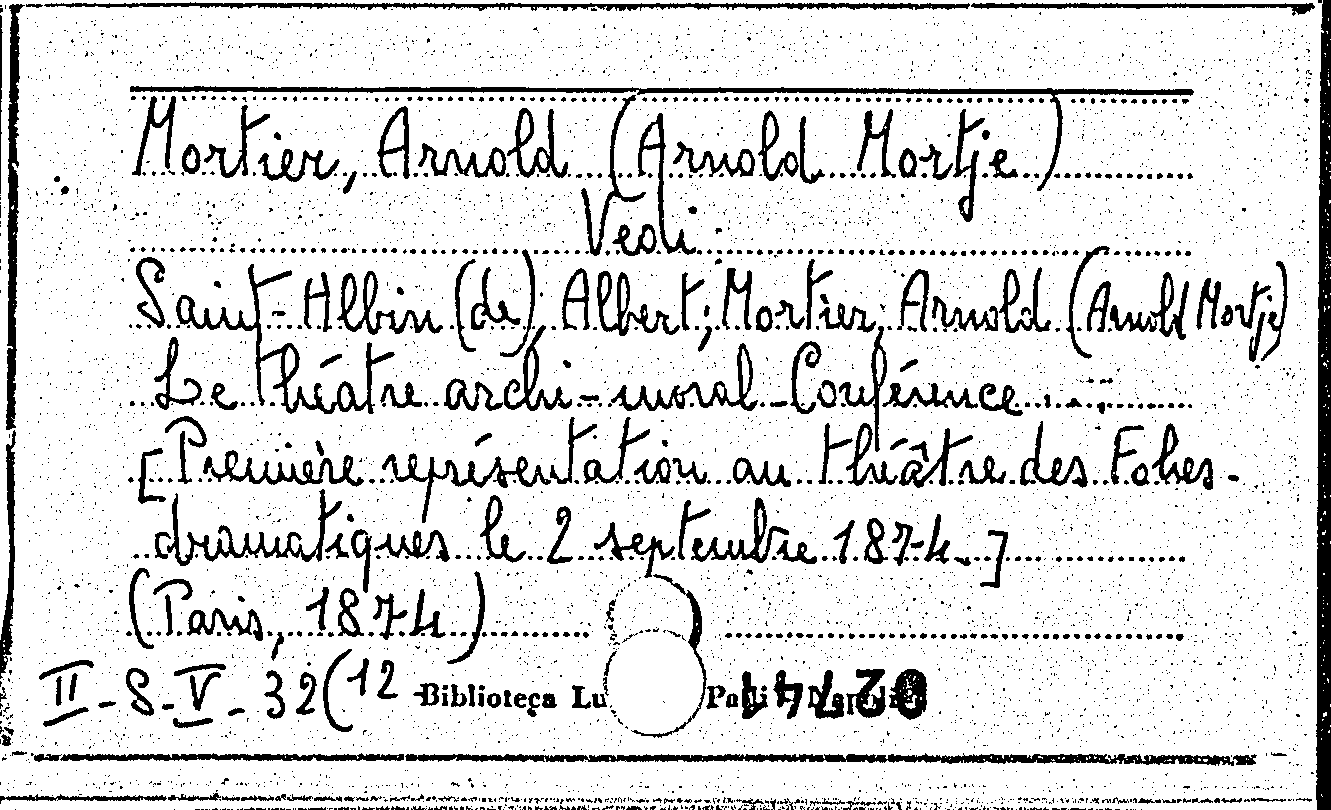 Mortier, Arnold (Arnold Mortje)
Vedi:
Saint-Albin (de), Albert; Mortier, Arnold (Arnold Mortje)
Le théâtre archi-moral-Conférence....
[Première représentation au théâtre des Folies-
dramatiques le 2 septembre 1874.]
(Paris, 1874)
II-S-V-32(12
Biblioteca Lu